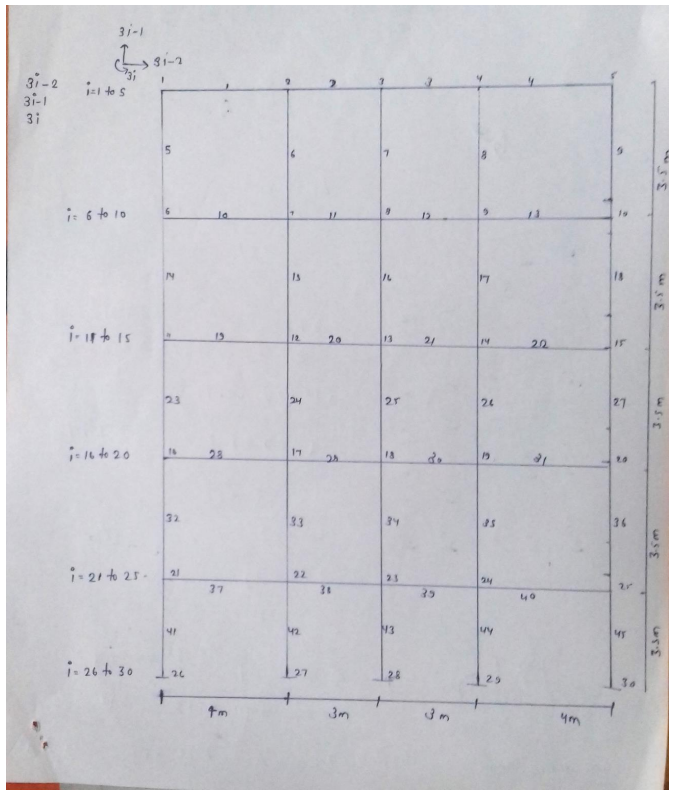 3i-1
3i-2
3i
3i-2
3i-1
3i
i=1 to 5
1 1 2 2 3 3 4 4 5
5 6 7 8 9
3.5 m
i= 6 to 10
6 10 7 11 8 12 9 13 10
14 15 16 17 18
3.5 m
i= 11 to 15
11 19 12 20 13 21 14 22 15
23 24 25 26 27
3.5m
i=16 to 20
16 28 17 29 18 30 19 31 20
32 33 34 35 36
3.5m
i= 21 to 25
21 22 23 24 25
37 38 39 40
41 42 43 44 45
3.5m
i= 26 to 30
26 27 28 29 30
4m 3m 3m 4m